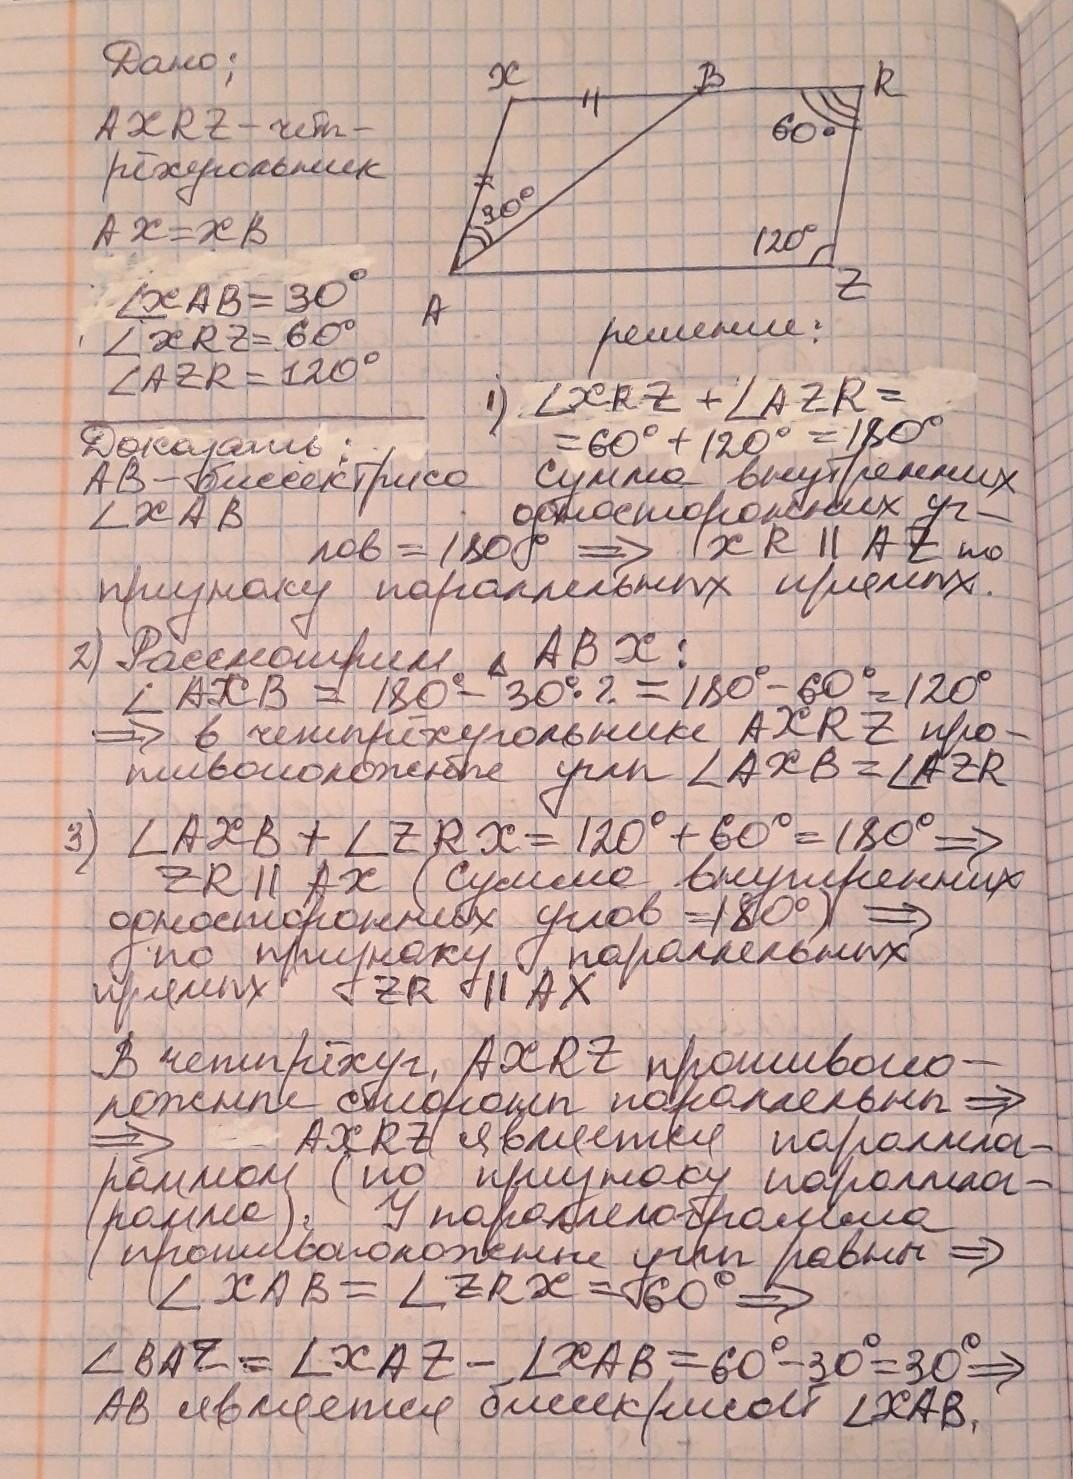 Дано;
X B R
AXRZ - чет-
60°
рёхугольник
30°
AX = XB
120°
∠XAB = 30°
A Z
∠XRZ = 60°
решение:
∠AZR = 120°
1) ∠XRZ + ∠AZR =
= 60° + 120° = 180°
Доказать:
AB - биссектриса сумма внутренних
∠XAB односторонних уг-
лов = 180° ⇒ XR || AZ по
признаку параллельных прямых.
2) Рассмотрим △ ABX:
∠AXB = 180° - 30°·2 = 180° - 60° = 120°
⇒ в четырёхугольнике AXRZ про-
тивоположные углы ∠AXB = ∠AZR
3) ∠AXB + ∠ZRX = 120° + 60° = 180° ⇒
ZR || AX (сумма внутренних
односторонних углов = 180°) ⇒
по признаку параллельных
прямых ZR || AX
В четырёхуг. AXRZ противопо-
ложные стороны параллельны ⇒
⇒ AXRZ является паралле-
раммом (по признаку паралле-
рамма). У параллелограмма
противоположные углы равны ⇒
∠XAB = ∠ZRX = 60° ⇒
∠BAZ = ∠XAZ - ∠XAB = 60° - 30° = 30° ⇒
AB является биссекрисой ∠XAB.